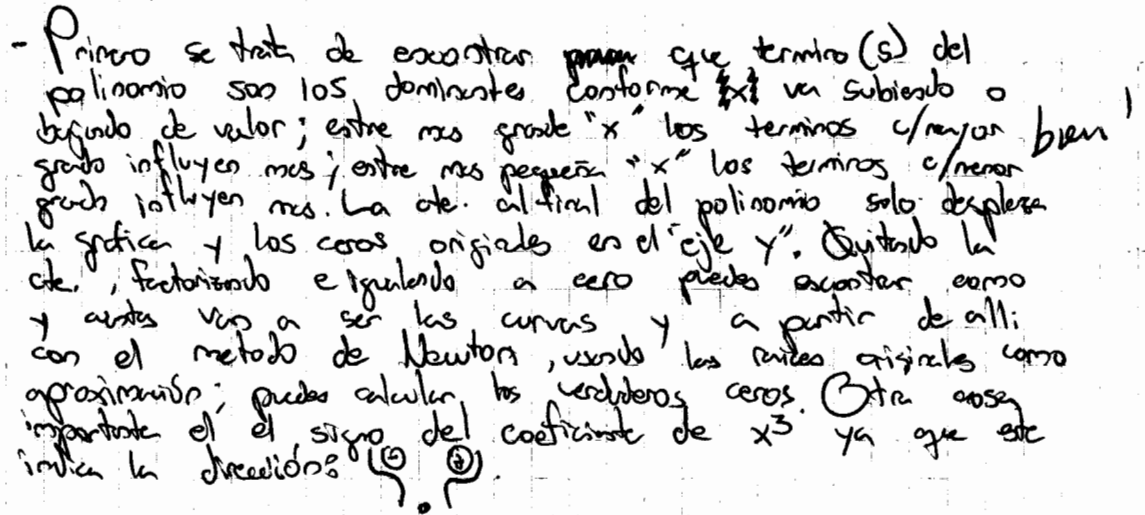 - Primero se trata de encontrar que termino(s) del
polinomio son los dominantes conforme |x| va subiendo o
bajando de valor; entre mas grande "x" los terminos c/mayor bien
grado influyen mas; entre mas pequeña "x" los terminos c/menor
grado influyen mas. La cte. al final del polinomio solo desplaza
la grafica y los ceros originales en el "eje y". Quitando la
cte., factorizando e igualando a cero puedes encontrar como
y cuantas van a ser las curvas y a partir de alli
con el metodo de Newton, usando las raices originales como
aproximación; puedes calcular los verdaderos ceros. Otra cosa
importante el el signo del coeficiente de x³ ya que este
indica la dirección: